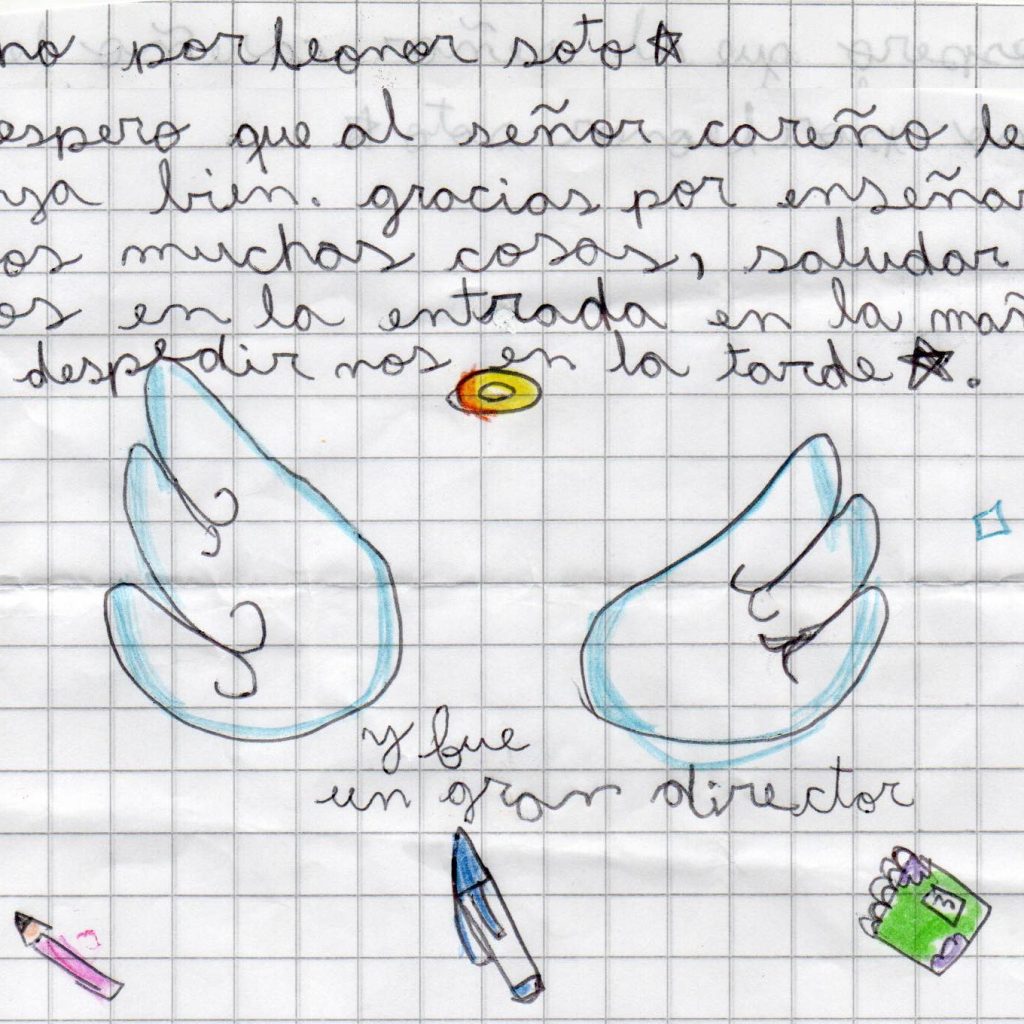 no por leonor soto
espero que al señor careño le
nza bien. gracias por enseñar
os muchas cosas, saludar
os en la entrada en la mañ
despedir nos en la tarde.
y fue
un gran director
3